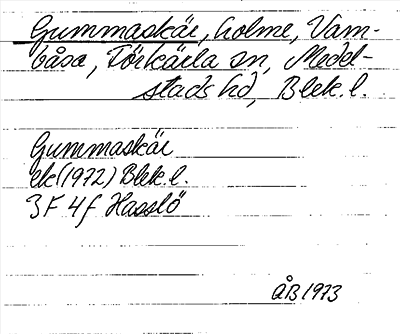 Gummaskär, holme, Vam-
båsa, Förkärla sn, Medel-
stads hd, Blek. l.
Gummaskär
ek (1972) Blek. l.
3F 4f Hasslö
ÅB 1973